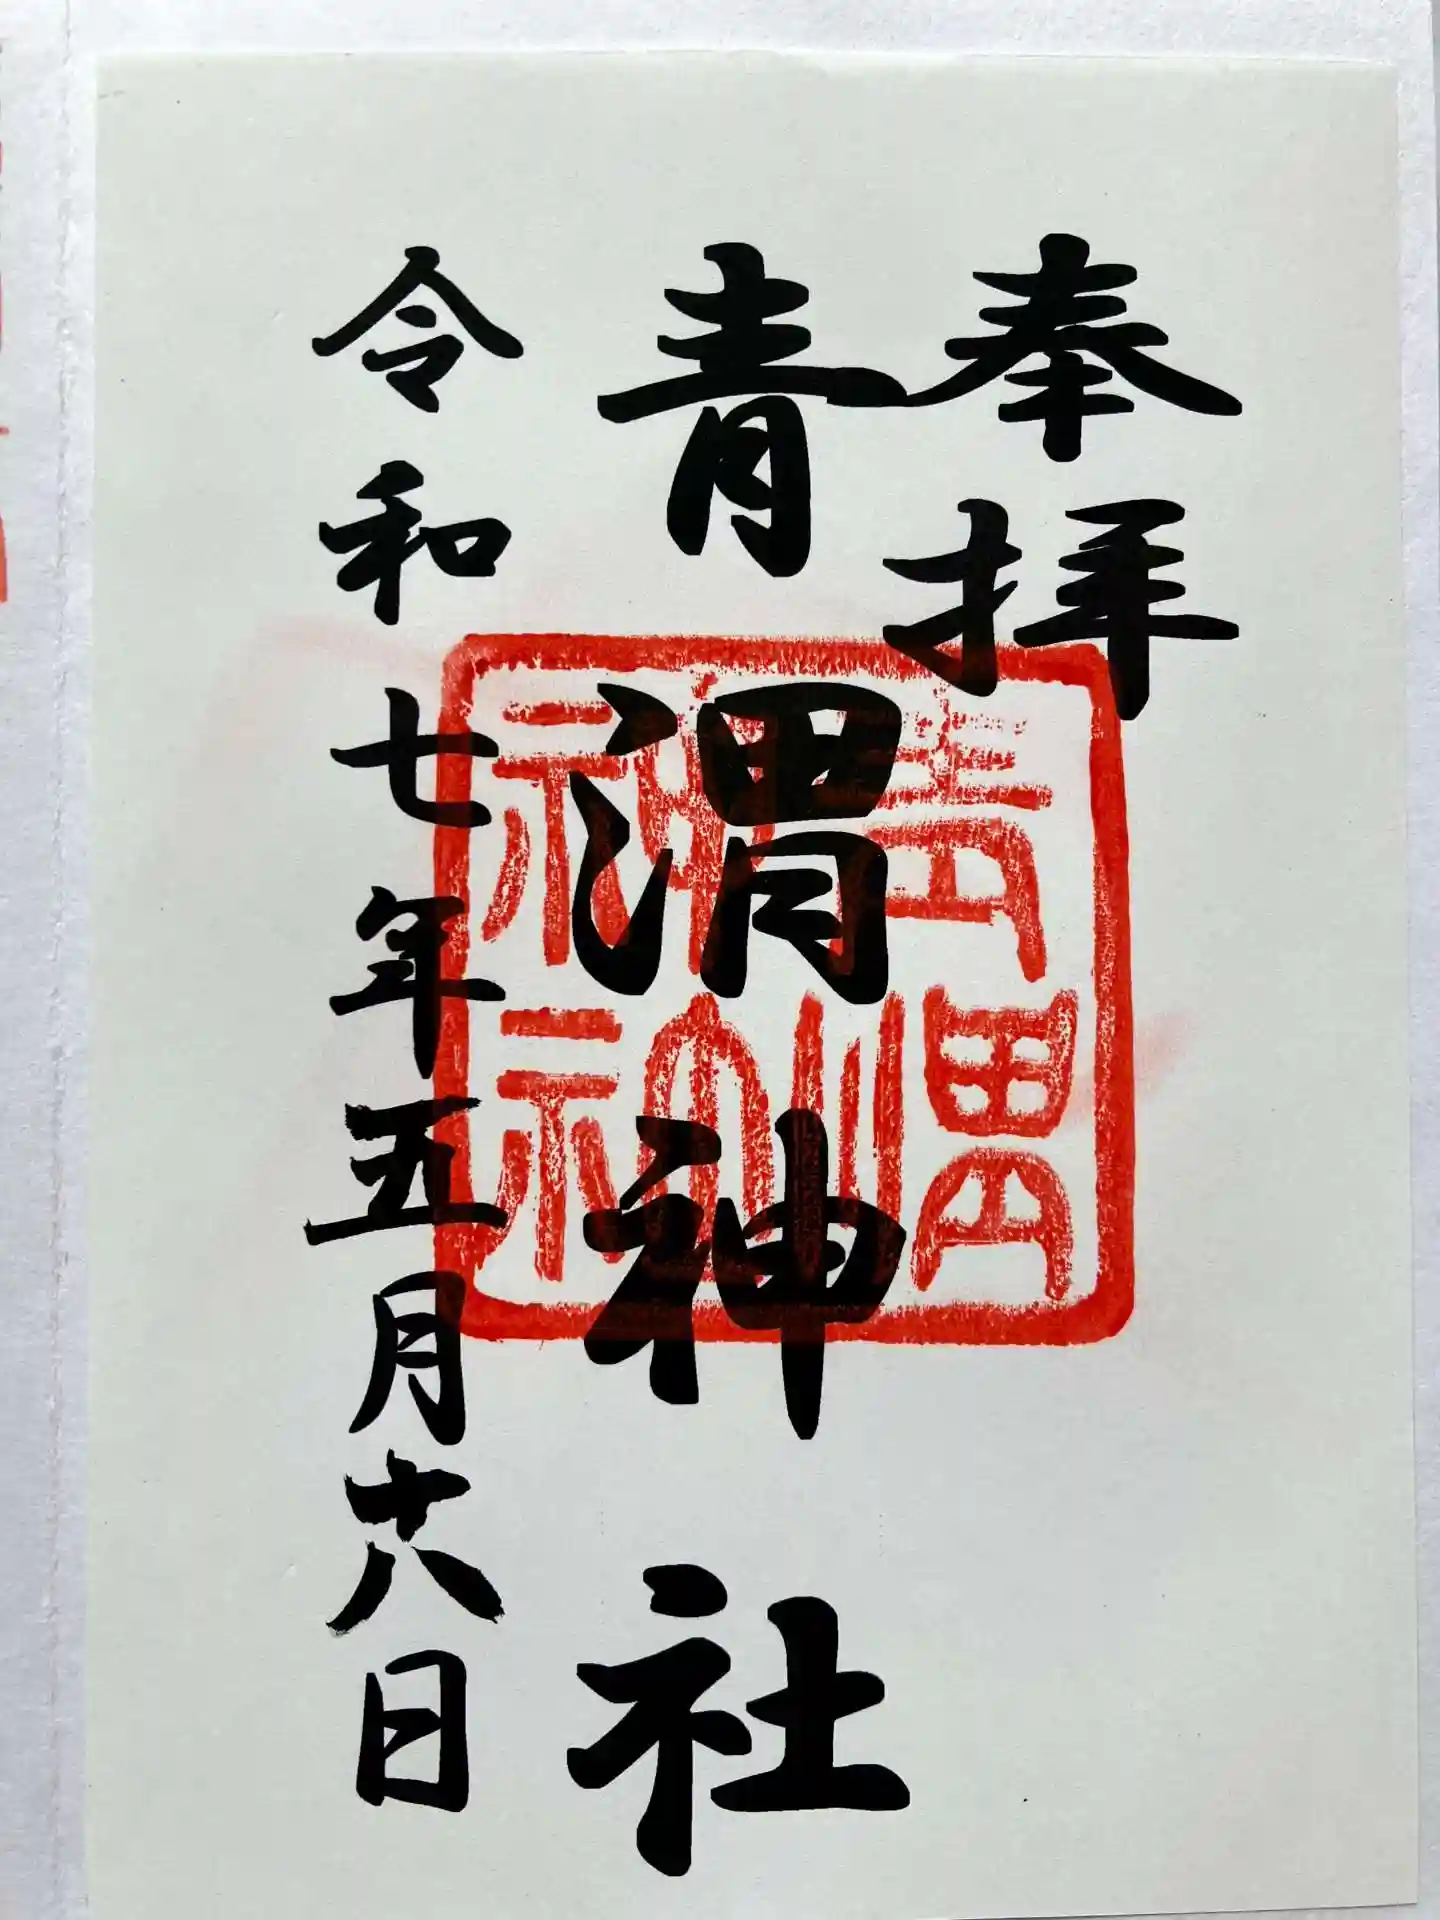 奉拝
青渭神社
令和七年五月十八日
青渭
神社